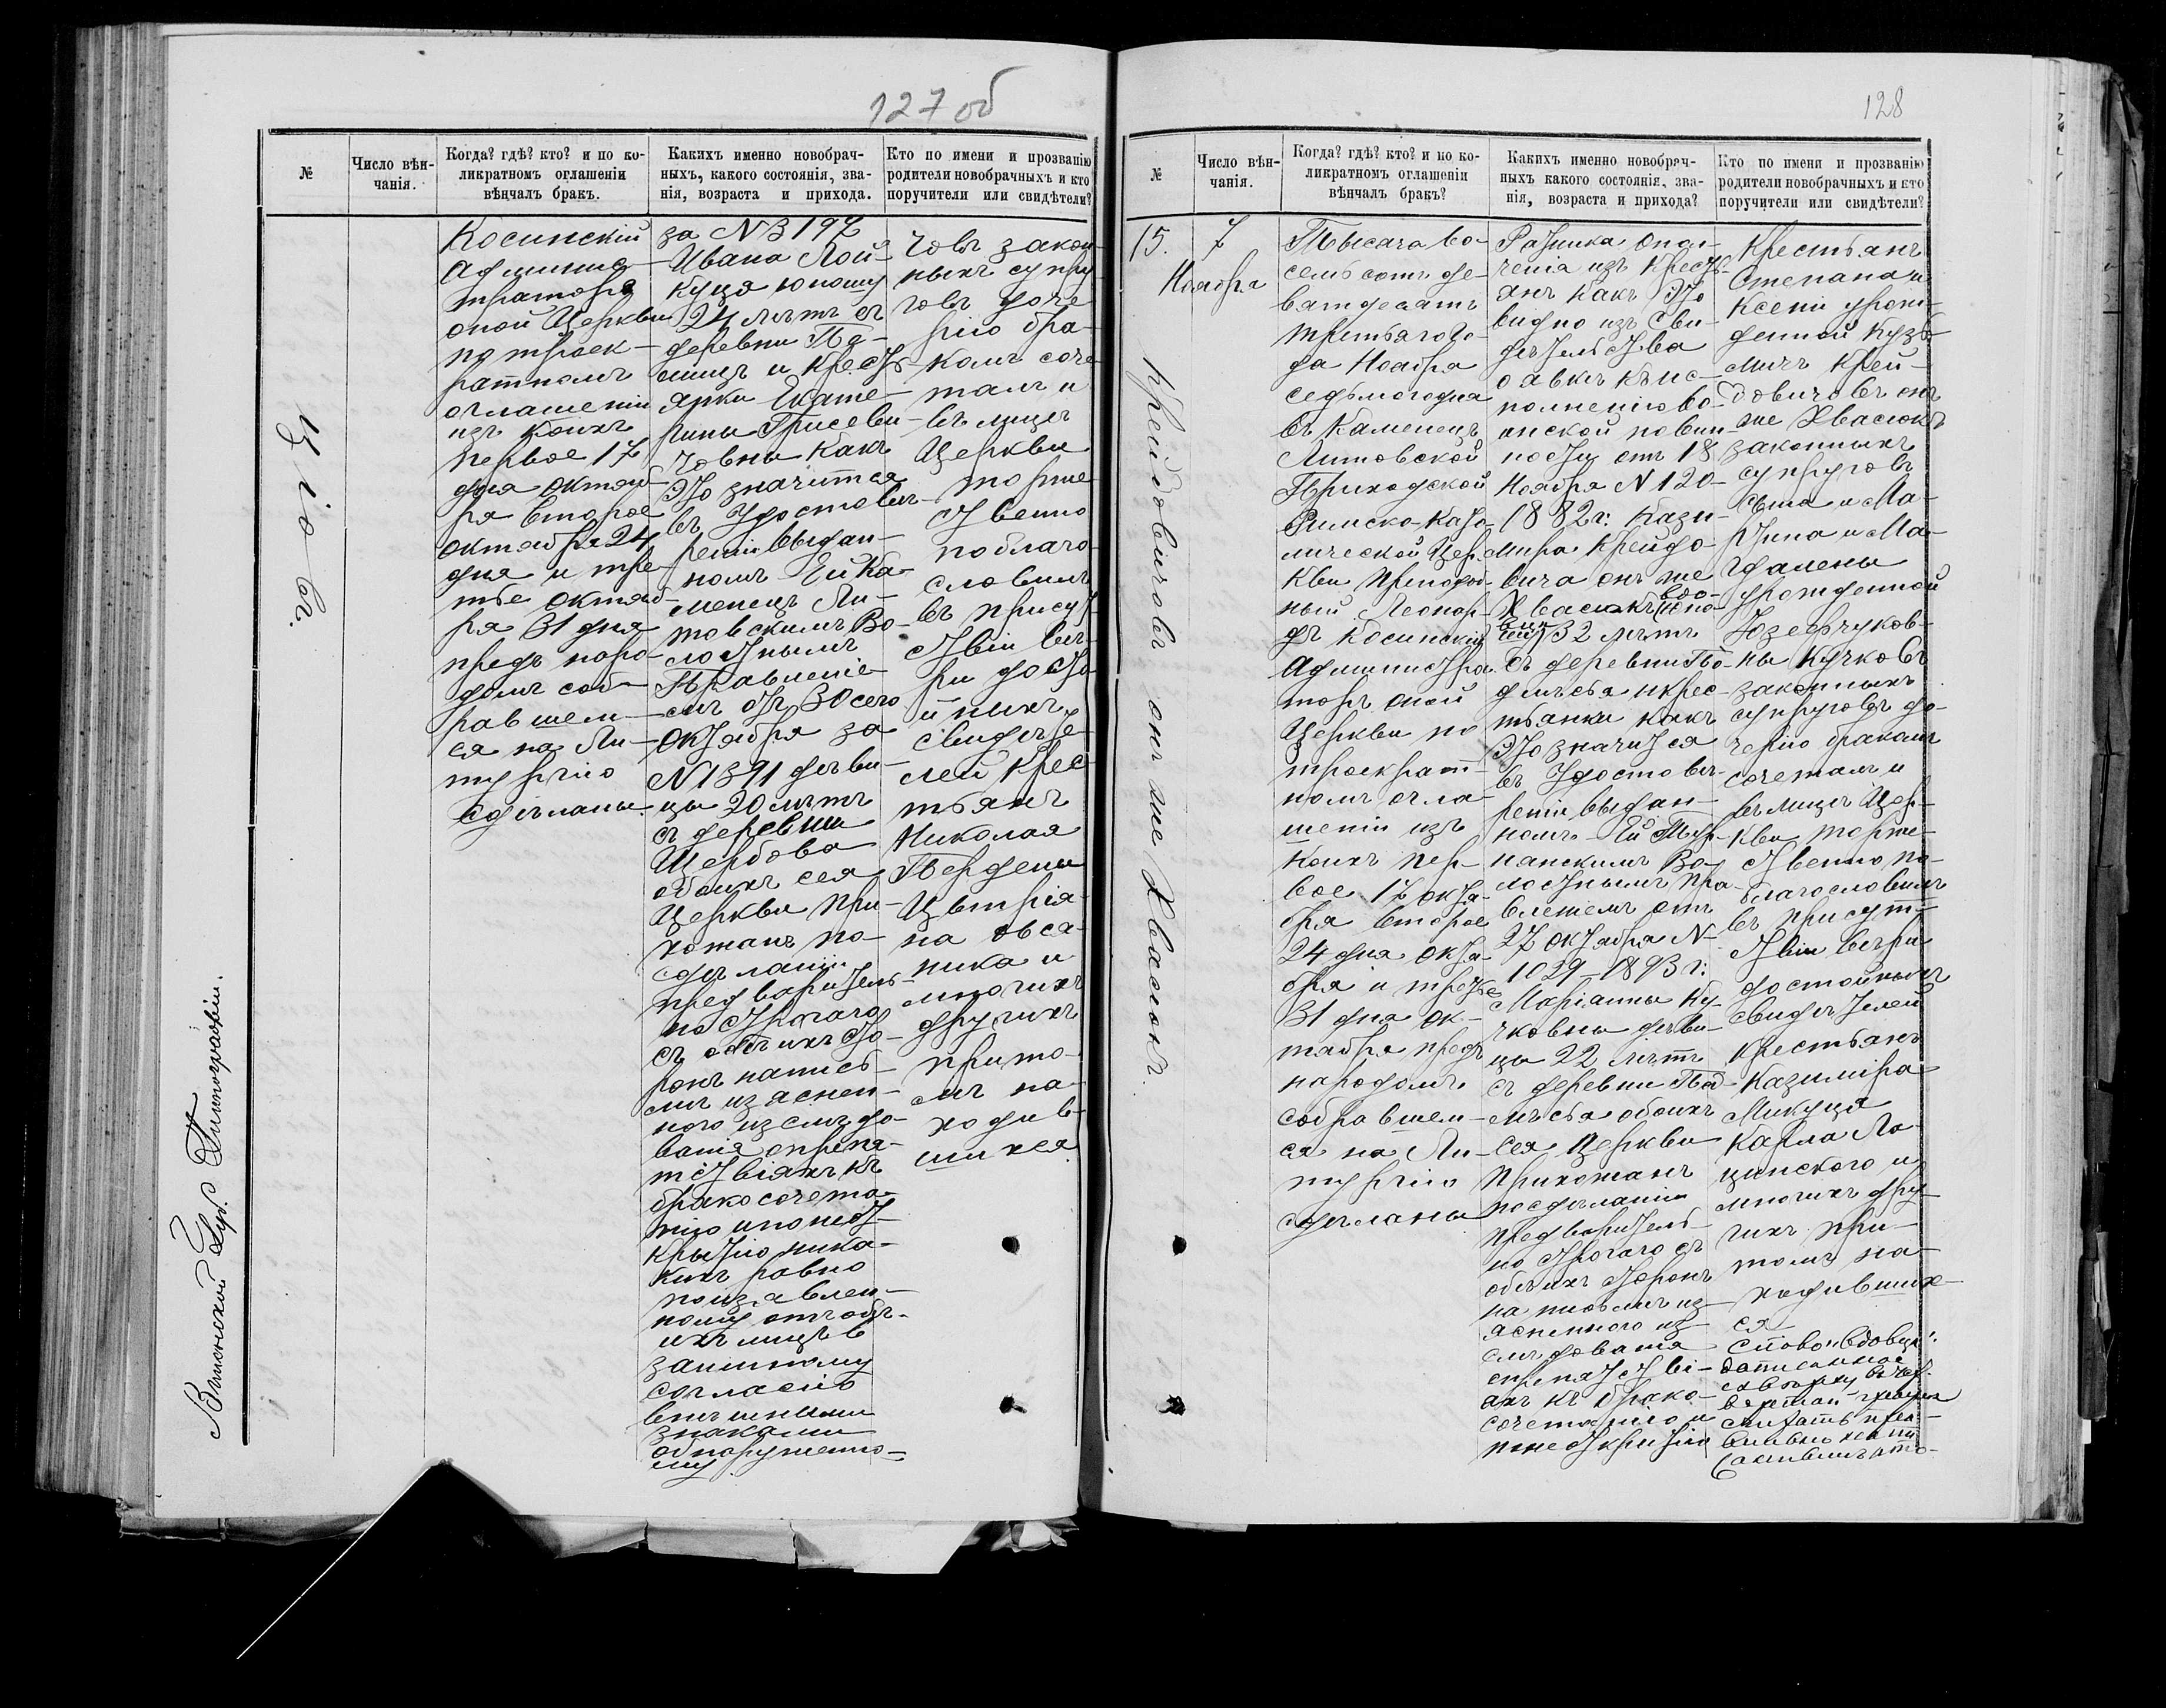 127 об
№
Число вѣн-
чанія.
Когда? гдѣ? кто? и по ко-
ликратномъ оглашеніи
вѣнчалъ бракъ.
Какихъ именно новобрач-
ныхъ, какого состоянія, зва-
нія, возраста и прихода.
Кто по имени и прозванію
родители новобрачныхъ и кто
поручители или свидѣтели?
Косинскій
Админис-
траторъ
оной Церкви
по троек-
ратномъ
оглашеніи
изъ коихъ
первое 17
дня октяб-
ря второе
октября 24
дня и тре-
тье октяб-
ря 31 дня
предъ наро-
домъ соб-
равшем-
ся на Ли-
тургію
сдѣланы.
за N 3197
Ивана Лой-
куця юношу
24 лѣтъ съ
деревни
и Кресть-
янки Екате-
рины Грисеви-
човны какъ
это значится
въ Удостовѣ-
реніи выдан-
номъ Ей Ка-
менецъ Ли-
товскимъ Во-
лостнымъ
Правленіе-
мъ отъ 30 сего
октября за
N 1391 дѣви-
цы 20 лѣтъ
съ деревни
Щербова
обоихъ сея
Церкви При-
хожанъ по
сдѣланіи
предваритель-
но строгаго
съ обѣихъ сто-
ронъ на письѣ-
мѣ изяснен-
ного изслѣдо-
ванія о препя-
тствіяхъ къ
бракосочета-
нію и по неот-
крытію ника-
кихъ равно
по изявлен-
ному отъ обѣ-
ихъ лицъ в
заимному
согласію
внѣшными
знаками
обнаруженно-
му
човъ закон-
ныхъ супру-
говъ доче-
рію бра-
комъ соче-
талъ и
въ лицѣ
Церкви
торже-
ственно
поблаго-
словилъ
въ присут-
ствіи вѣ-
ри досто-
йныхъ
свидѣте-
лей Крес-
тьянъ
Николая
на Овся-
ника и
многихъ
другихъ
при то-
мъ на-
ходив-
шихся
човъ
Виленской Губ. Типографіи.
128
№
Число вѣн-
чанія.
Когда? гдѣ? кто? и по ко-
ликратномъ оглашеніи
вѣнчалъ бракъ?
Какихъ именно новобрач-
ныхъ какого состоянія, зва-
нія, возраста и прихода?
Кто по имени и прозванію
родители новобрачныхъ и кто
поручители или свидѣтели?
15.
7
Ноября
Крейдовичовъ онъ же Хвасюкъ.
Тысяча во-
семь сотъ де-
вятдесятъ
третьяго го-
да Ноября
седьмого дня
въ Каменецъ
Литовской
Приходской
Римско-Като-
лической Цер-
кви Преподоб-
ный Леонар-
дъ Косинскій
Администра-
торъ оной
Церкви по
троекрат-
номъ огла-
шеніи изъ
коихъ пер-
вое 17 октя-
бря второе
24 дня октя-
бря и третье
31 дня ок-
тября предъ
народомъ
собравшем-
ся на Ли-
тургію
сдѣланы
Ратника опол-
ченія изъ кресть-
янъ какъ это
видно изъ сви-
дѣтельства
о явкѣ къ ис-
полненію во-
инской повин-
ности отъ 18
Ноября N 120-
1882 г: Кази-
мира Крейдо-
вича онъ же
Хвасюкъ
32 лѣтъ
съ деревни По-
длѣсья и крес-
тьянки какъ
это значится
въ Удостовѣ-
реніи выдан-
номъ Ей
Во-
лостнымъ Пра-
вленіемъ отъ
27 октября N-
1029-1893 г:
Маріанны Ку-
чковны дѣви-
цы 22 лѣтъ
съ деревни Под-
лѣсья обоихъ
сея Церкви
Прихожанъ
по сдѣланіи
предваритель-
но строгаго съ
обѣихъ сторонъ
на письмѣ из-
ясненного из-
слѣдованія
о препятстві-
яхъ къ брако-
сочетанію и
по неоткрытію
Крестьянъ
Степана и
Ксеніи урож-
денной Кузь-
мичъ Крей-
довичовъ онъ
же Хвасюкъ
законныхъ
супруговъ
сына и Ма-
ртина и Ма-
гдалены
урожденной
Юзефчуков-
ны Кучковъ
законныхъ
супруговъ до-
черію бракомъ
сочеталъ и
въ лицѣ Цер-
кви торже-
ственно по-
благословилъ
въ присут-
ствіи вѣри
достойныхъ
свидѣтелей
Крестьянъ
Казиміра
Микуця
Карла Ло-
цинского и
многихъ дру-
гихъ при-
томъ на-
ходивших-
ся
Слово „вдовца":
дописанное
считать